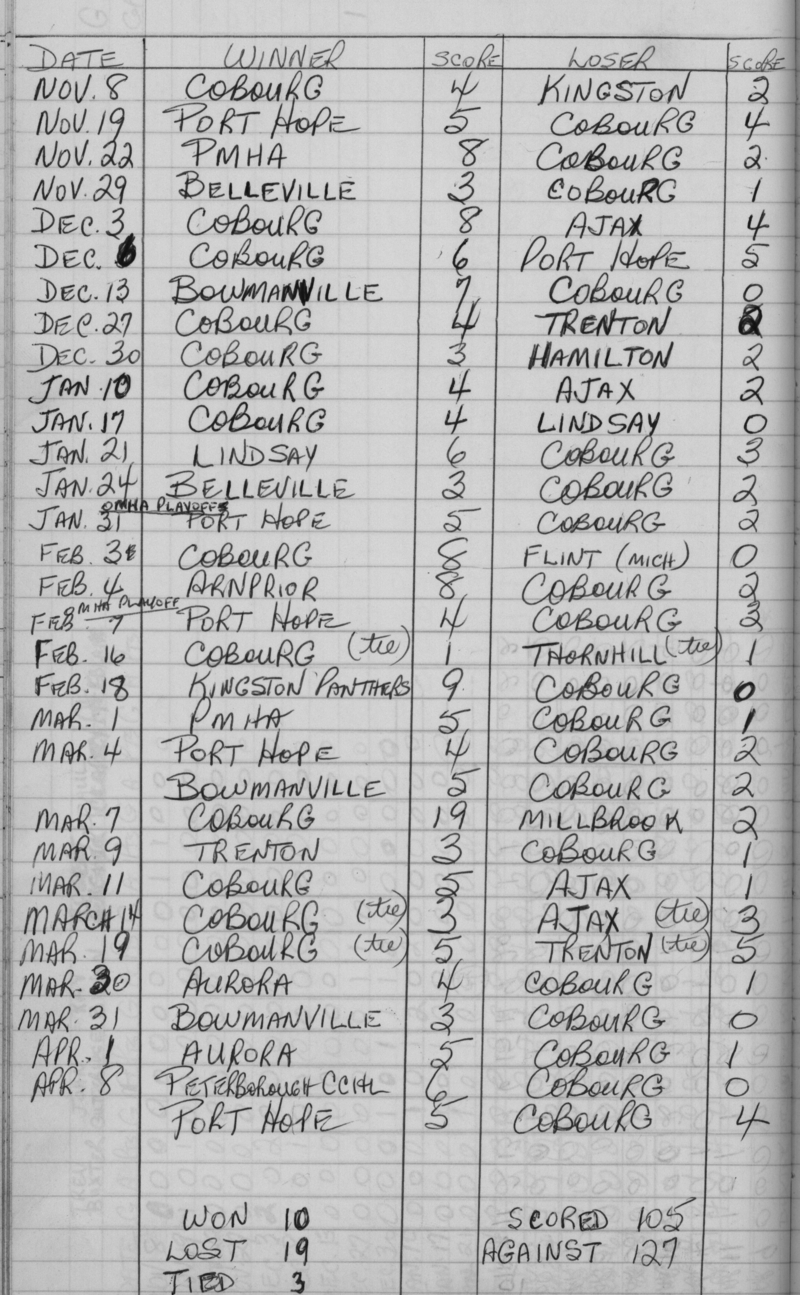 DATE WINNER SCORE LOSER SCORE
NOV. 8 COBOURG 4 KINGSTON 2
NOV. 19 PORT HOPE 5 COBOURG 4
NOV. 22 PMHA 8 COBOURG 2
NOV. 29 BELLEVILLE 3 COBOURG 1
DEC. 3 COBOURG 8 AJAX 4
DEC. 6 COBOURG 6 PORT HOPE 5
DEC. 13 BOWMANVILLE 7 COBOURG 0
DEC. 27 COBOURG 4 TRENTON 2
DEC. 30 COBOURG 3 HAMILTON 2
JAN. 10 COBOURG 4 AJAX 2
JAN. 17 COBOURG 4 LINDSAY 0
JAN. 21 LINDSAY 6 COBOURG 3
JAN. 24 BELLEVILLE 3 COBOURG 2
OMHA PLAYOFFS
JAN. 31 PORT HOPE 5 COBOURG 2
FEB. 3 COBOURG 8 FLINT (MICH) 0
FEB. 4 ARNPRIOR 8 COBOURG 2
OMHA PLAYOFF
FEB 7 PORT HOPE 4 COBOURG 3
FEB. 16 COBOURG (tie) 1 THORNHILL (tie) 1
FEB. 18 KINGSTON PANTHERS 9 COBOURG 0
MAR. 1 PMHA 5 COBOURG 1
MAR. 4 PORT HOPE 4 COBOURG 2
BOWMANVILLE 5 COBOURG 2
MAR. 7 COBOURG 19 MILLBROOK 2
MAR. 9 TRENTON 3 COBOURG 1
MAR. 11 COBOURG 5 AJAX 1
MARCH 14 COBOURG (tie) 3 AJAX (tie) 3
MAR. 19 COBOURG (tie) 5 TRENTON (tie) 5
MAR. 30 AURORA 4 COBOURG 1
MAR. 31 BOWMANVILLE 3 COBOURG 0
APR. 1 AURORA 5 COBOURG 1
APR. 8 PETERBOROUGH CCHL 6 COBOURG 0
PORT HOPE 5 COBOURG 4
WON 10 SCORED 105
LOST 19 AGAINST 127
TIED 3